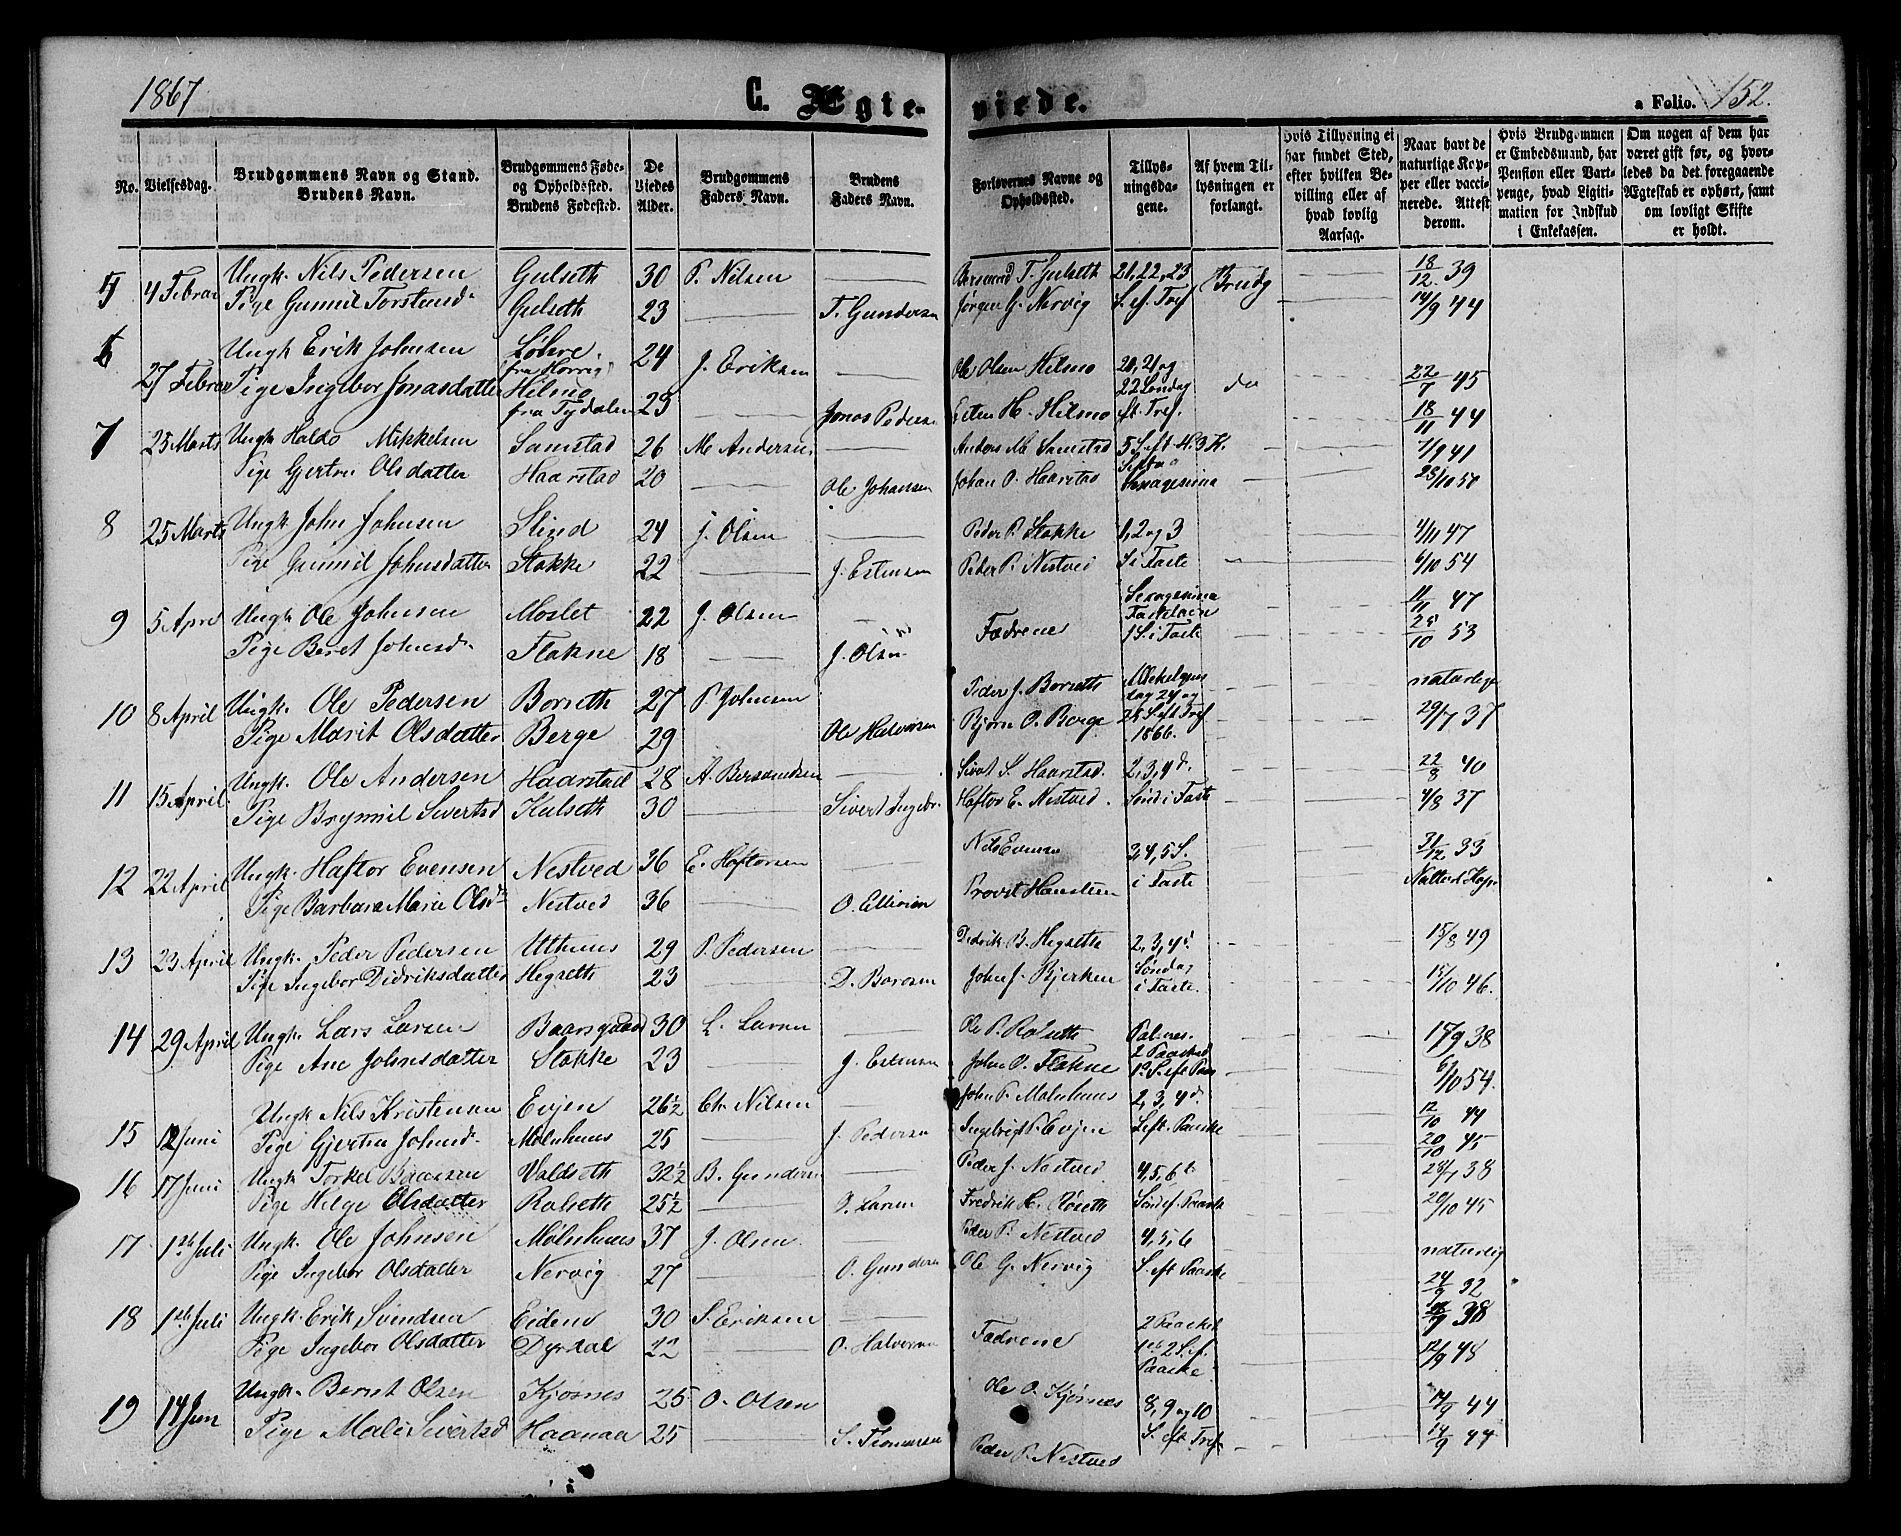 1867
C. Ægteviede.
a Folio. 152.
No.
Vielsesdag.
Brudgommens Navn og Stand.
Brudens Navn.
Brudgommens Føde- og Opholdsted.
Brudens Fødested.
De Viedes Alder.
Brudgommens Faders Navn.
Brudens Faders Navn.
Forlovernes Navne og Opholdsted.
Tillysningsdagene.
Af hvem Tillysningen er forlangt.
Hvis Tillysning ei har fundet Sted, efter hvilken Bevilling eller af hvad lovlig Aarsag.
Naar havt de naturlige Kopper eller vaccinerede. Attest derom.
Hvis Brudgommen er Embedsmand, har Pension eller Vartpenge, hvad Ligitimation for Indskud i Enkekassen.
Om nogen af dem har været gift før, og hvorledes da det foregaaende Ægteskab er ophørt, samt om lovligt Skifte er holdt.
5 4 Februar Ungk. Nils Pedersen Gulseth 30 P. Nilsen T. Gulseth 21, 22, 23 Brudg 18/12 39
Pige Gunnil Torstensd. Gulseth 23 T. Gundersen Jørgen G. Nervig S. ef. Tref 14/9 44
6 27 Februar Ungk Erik Johnsen Løhre fra Horrig 24 J. Eriksen Ole Olsen Hilmo 20, 21 og do 22/7 45
Pige Ingebor Jonasdatter Hilmo fra Tydalen 25 Jonas Pedersen H. Hilmo 22 Søndag eft. Tref. 18/11 44
7 25 Marts Ungk Haldo Mikkelsen Samstad 26 M. Andersen Anders M. Samstad 5 S. eft. H. 3 K. 7/9 41
Pige Gjertru Olsdatter Haarstad 20 Ole Johansen Johan O. Haarstad 25/10 50
8 25 Marts Ungk. John Johnsen Slind 24 J. Olsen Peder P. Stokke 1, 2 og 3 4/11 47
Pige Gunnil Johnsdatter Stokke 22 J. Estensen Peder P. Nestved S. i Faste 6/10 54
9 5 April Ungk. Ole Johnsen Moslet 22 J. Olsen Fædrene Sexagesima Fastelavn 11/11 47
Pige Beret Johnsd. Flakne 18 J. Olsen 1 S. i Faste 25/10 53
10 8 April Ungk. Ole Pedersen Borseth 27 P. Johnsen Peder J. Borseth Mikkelsmesdag 24 og naturlige
Pige Marit Olsdatter Berge 29 Ole Halvorsen Bjørn O. Berge 25 S. eft Tref 1866. 29/7 37
11 15 April. Ungk. Ole Andersen Haarstad 28 A. Bersvendsen Sivert S. Haarstad. 2, 3, 4d. 22/8 40
Pige Brynnil Sivertsd Kulseth 30 Sivert Ingebr. Haftor E. Nestved. Sønd i Faste 4/8 37
12 22 April Ungk. Haftor Evensen Nestved 36 E. Haftorsen Nils Evensen 3, 4, 5 S. 31/12 33
Pige Barbara Marie Olsd. Nestved 36 O. Ellevsen Provst Hansteen i Faste Naturl. Kop
13 23 April Ungk. Peder Pedersen Uthuus 29 P. Pedersen Didrik B. Hegseth 2, 3, 4de 15/8 49
Pige Ingebor Didriksdatter Hegseth 23 D. Borosen John J. Bjerken Søndag i Faste. 15/10 46.
14 29 April Ungk. Lars Larsen Baarsgaard 30 L. Larsen Ole P. Rolseth Palmes. 2 Paaskd 17/9 38
Pige Ane Johnsdatter Stokke 23 J. Estensen John O. Flakne 1e S. eft Paas 6/10 54.
15 12 Juni Ungk Nils Kristensen Evjen 26½ Chr. Nilsen John P. Malnhuus 2, 3, 4d. 12/10 44
Pige Gjertru Johnsd. Mølnhuus 25 J. Pedersen Ingebrigt P. Evjen S. eft. Paaske 20/10 45
16 17 Juni Ungk Torkel Baarsen Valdseth 32½ B. Gundersen Peder J. Nestved 4, 5, 6te 28/7 38
Pige Helge Olsdatter Rolseth 25½ O. Larsen Fredrik H. Røseth Sønd ef. Paaske 20/10 45
17 1ste Juli Ungk. Ole Johnsen Mølnhuus 37 J. Olsen Peder P. Nestved 4, 5, 6 naturlig
Pige Ingebor Olsdatter Nervig 27 O. Gundersen Ole G. Nervig S. eft Paaske 24/9 32
18 1ste Juli Ungk. Erik Svendsen Eidem 30 S. Eriksen Fædrene 2 Paaskd 38
Pige Ingebor Olsdatter Dyrdal 22 O. Halvorsen 1 og 2 S. ef. Paaske 12/9 45
19 14 Jun Ungk. Bernt Olsen Kjøsnes 25 O. Olsen Ole O. Kjøsnes 8, 9 og 10 14/9 44
Pige Mali Sivertsd Haanaa 25 S. Thomasen Peder P. Nestved S. eft. Tref 14/9 44